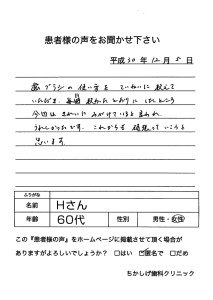 患者様の声をお聞かせ下さい
平成30年12月5日
歯ブラシの使い方を ていねいに教えて
いただき、毎回教わったとおりにしたところ
今回はきれいにみがけていると言われ
うれしかったです。これからも頑張っていこうと
思います。
ふりがな
名前 Hさん
年齢 60代 性別 男性・女性
この『患者様の声』をホームページに掲載させて頂く場合が
ありますがよろしいでしょうか? □はい ☑匿名で □だめ
ちかしげ歯科クリニック